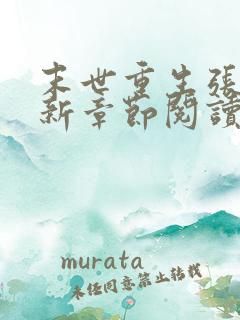 末世重生張
新章節閱讀
murata
未经同意禁止转载